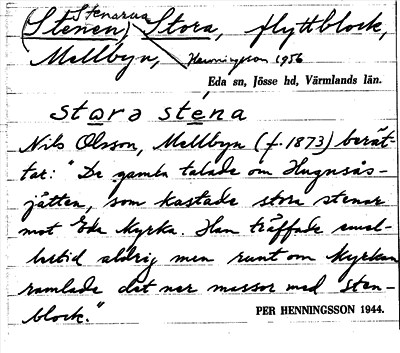 Stenarna
(Stenen) Stora, flyttblock,
Mellbyn, Henningsson 1956
Eda sn, Jösse hd, Värmlands län.
stora sténa
Nils Olsson, Mellbyn (f. 1873) berät-
tar: "De gamla talade om Hugnsås-
jätten, som kastade stora stenar
mot Eda kyrka. Han träffade emel-
lertid aldrig men runt om kyrkan
ramlade det ner massor med sten-
block."
PER HENNINGSSON 1944.